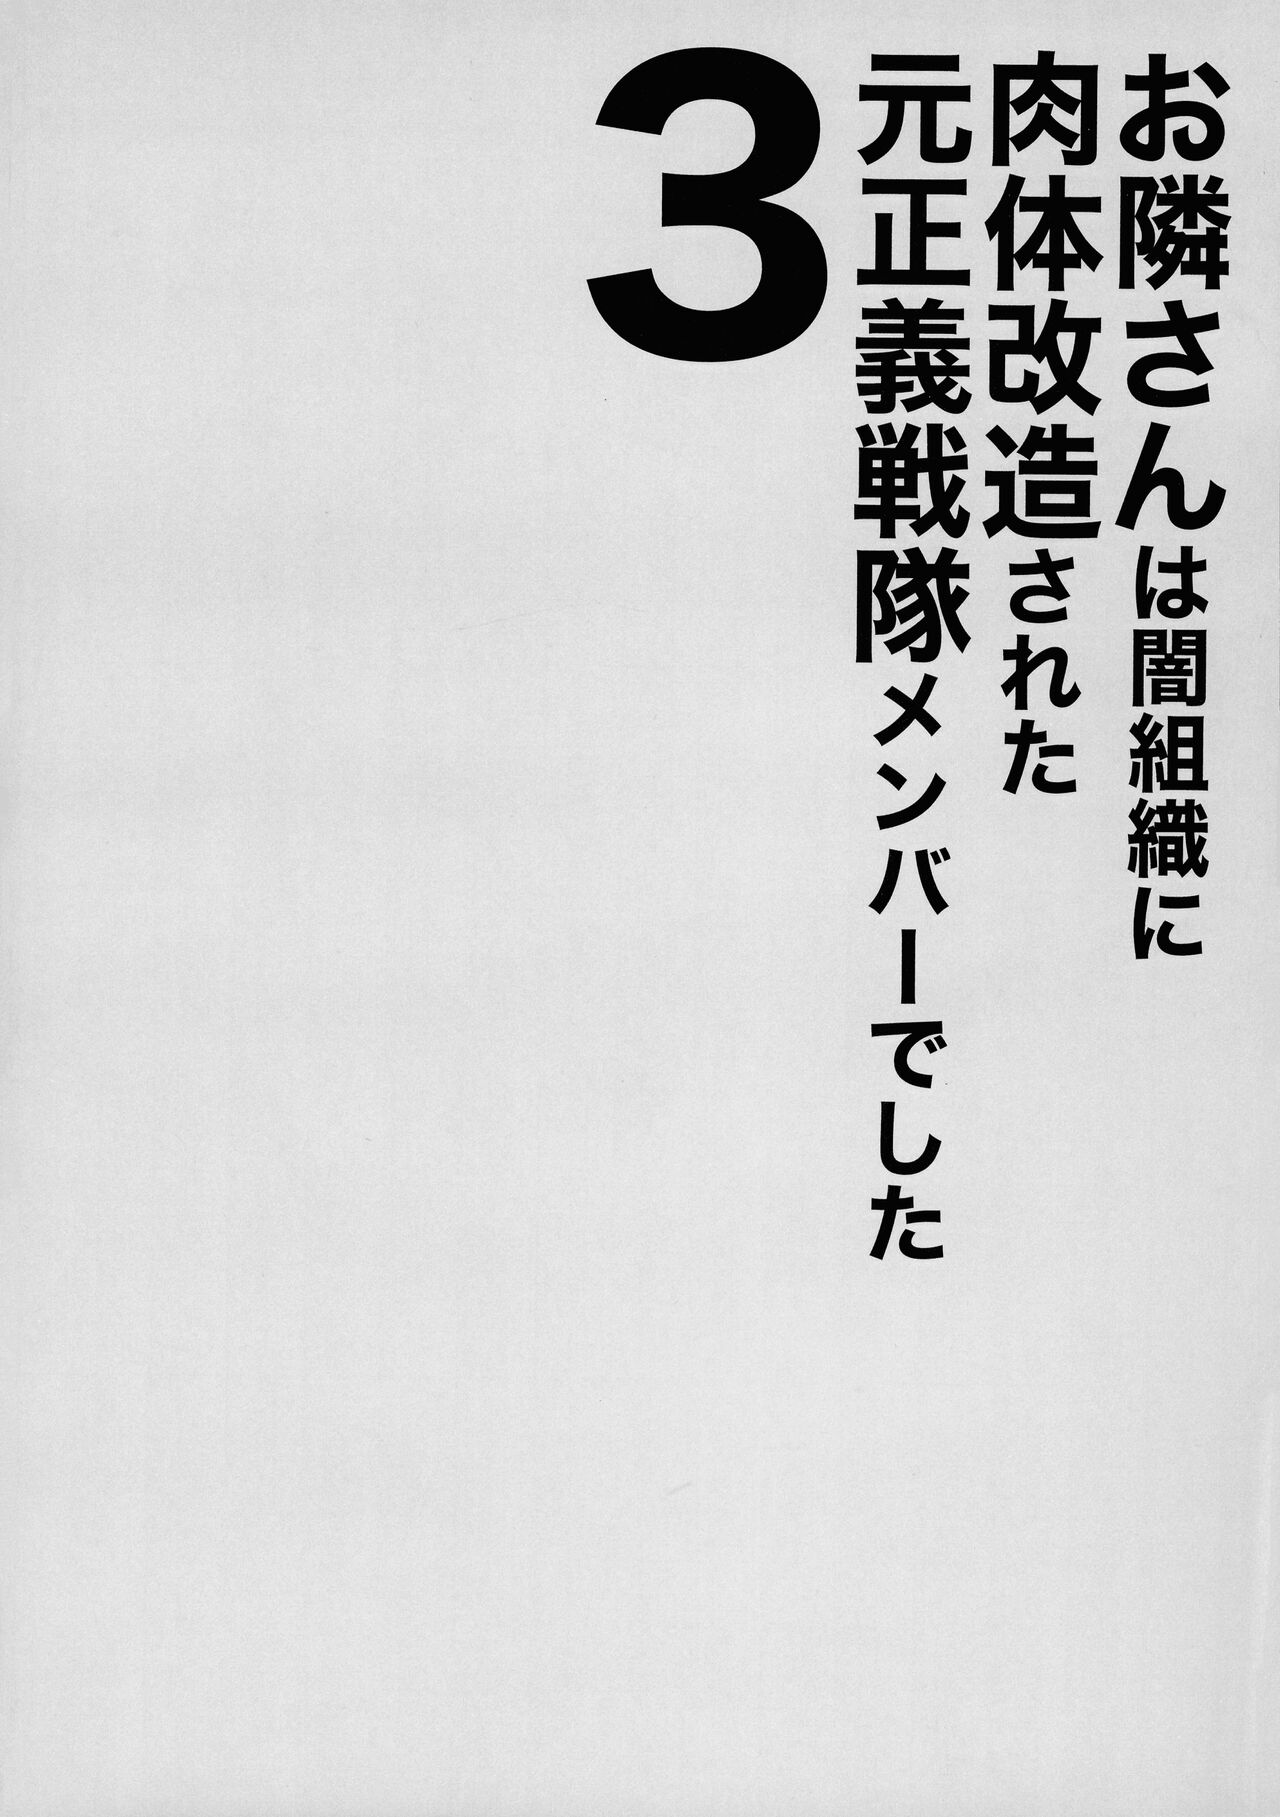 お隣さんは闇組織に
肉体改造された
元正義戦隊メンバーでした
3